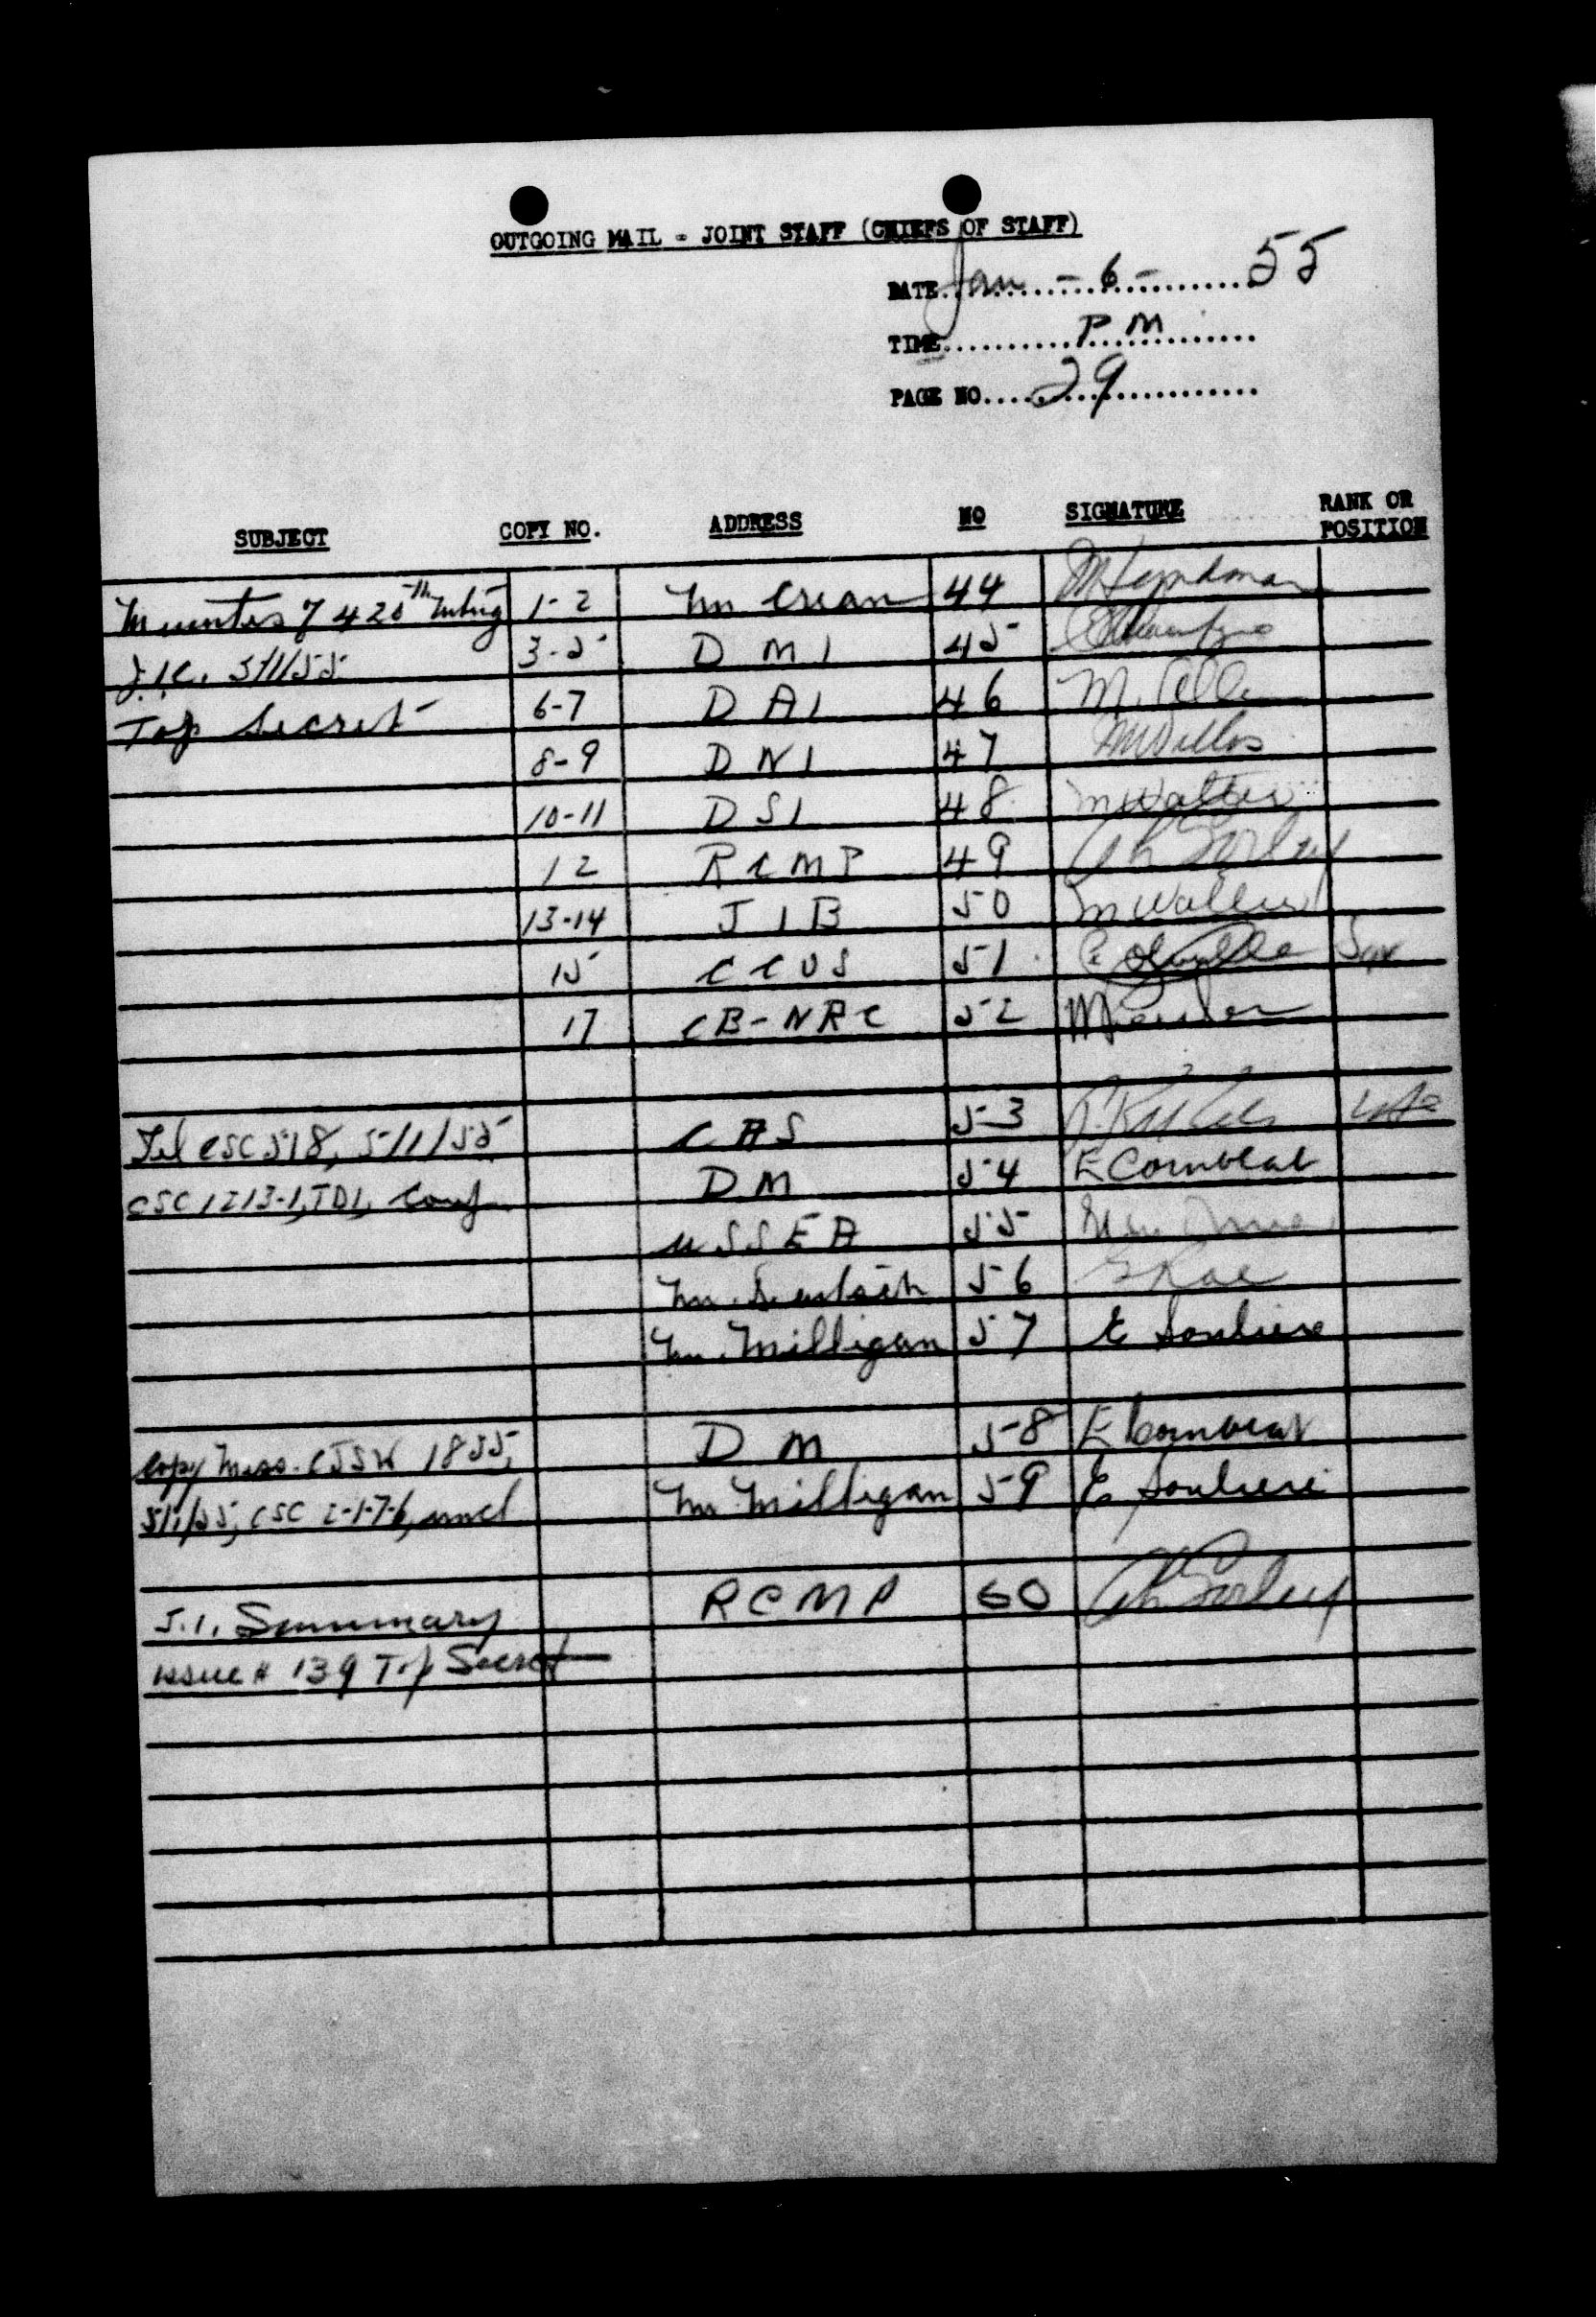 OUTGOING MAIL - JOINT STAFF (CHIEFS OF STAFF)
DATE Jan - 6 - 55
TIME P M
PAGE NO 29
SUBJECT COPY NO. ADDRESS NO SIGNATURE RANK OR POSITION
Minutes of 420th Mtng 1-2 Mr Crean 44
J.I.C. 5/1/55 3-5 D M I 45
Top Secret 6-7 D A I 46
8-9 D N I 47
10-11 D S I 48 M Walters
12 R C M P 49
13-14 J I B 50 M Walters
15 C C O S 51
17 CB-NRC 52
Tel CSC 518, 5/1/55 C A S 53
CSC 1213-1, TD1, Conf D M 54 E Combeat
U S S E A 55
Mr. 56 G Rae
Mr. Milligan 57 E Souliere
Copy Mess. CJSW 1855, D M 58 E Combeat
5/1/55, CSC 2-1-7-6, uncl Mr. Milligan 59 E Souliere
J.I. Summary R C M P 60
issue # 139 Top Secret